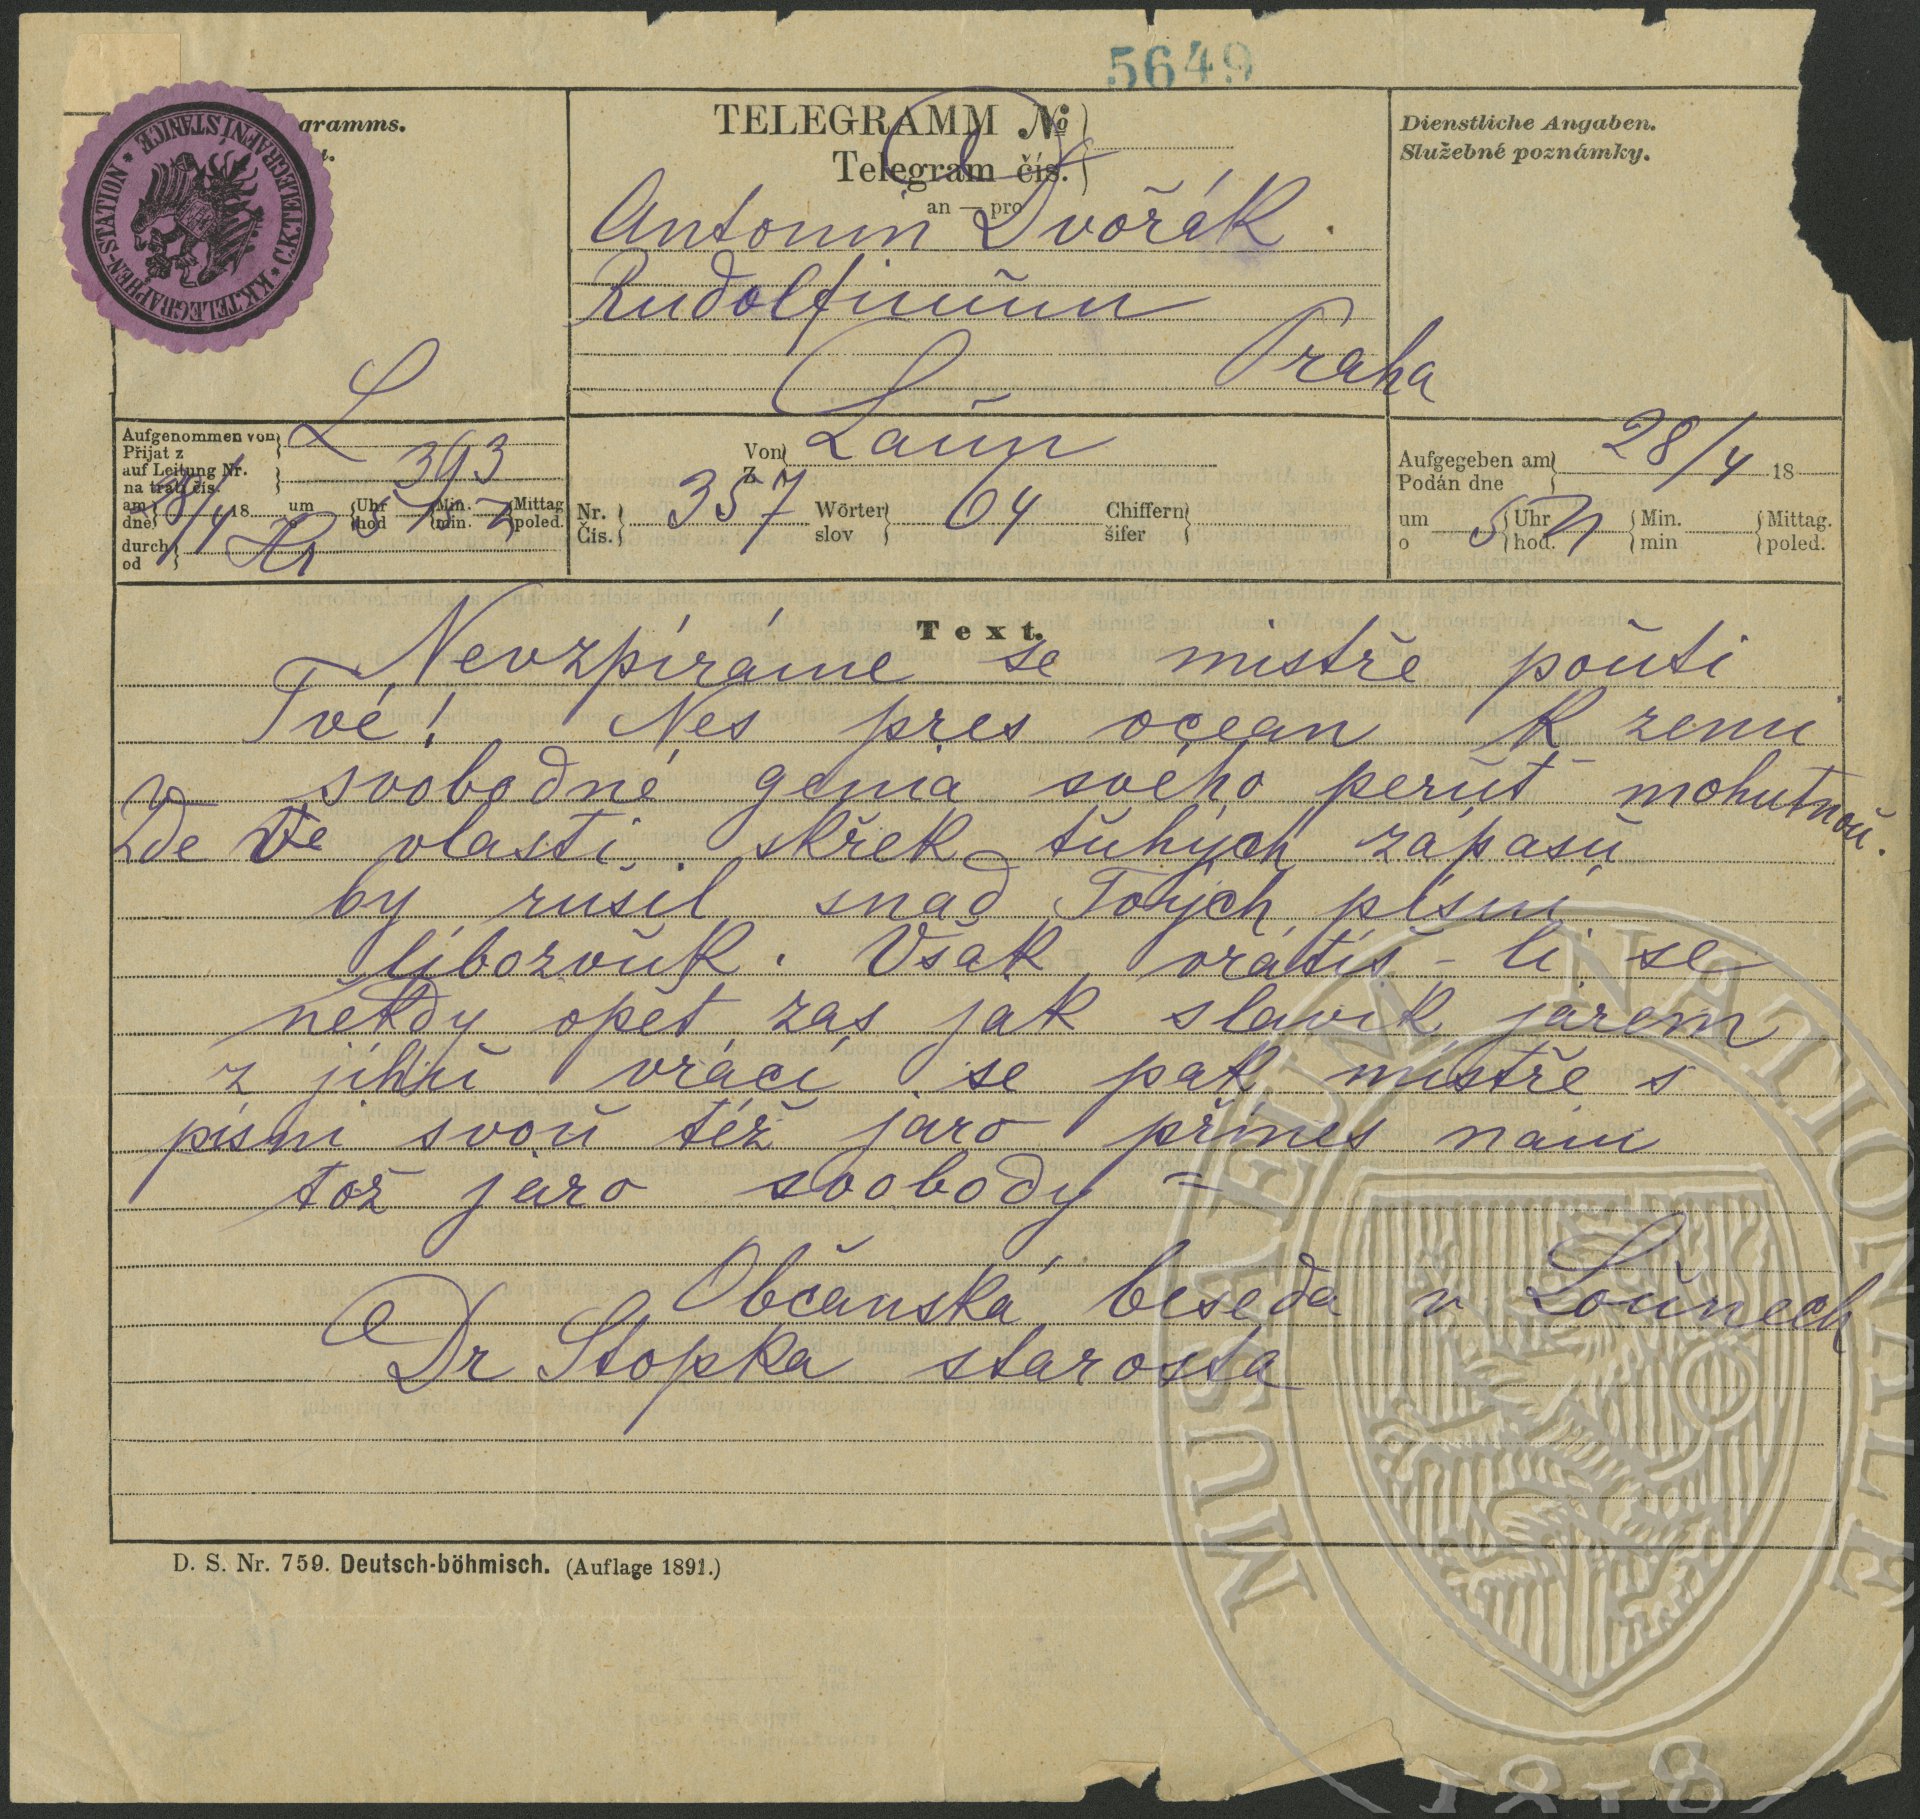 5649
gramms.
TELEGRAMM №
Telegram čís.
an — pro
Dienstliche Angaben.
Služebné poznámky.
K.K.TELEGRAPHEN-STATION * C.K.TELEGRAFNÍ STANICE *
Antonín Dvořák.
Rudolfinum
Praha
Aufgenommen von L
Přijat z
auf Leitung Nr. 393
na trati čís.
am 28/4 18 um Uhr 5 Min. Mittag
dne hod min. poled.
durch
od
Von Laun
Z
Nr. 357 Wörter 64 Chiffern
Čís. slov šifer
Aufgegeben am 28/4 18
Podán dne
um 5 Uhr Min. Mittag.
o hod. min poled.
Text.
Nevzpíráme se mistře pouti
Tvé! Nes přes ocean k zemi
svobodné genia svého peruť mohutnou.
Zde ve vlasti skřek tuhých zápasů
by rušil snad Tvých písní
libozvuk. Však vrátíš-li se
někdy opět zas jak slavík jarem
z jihu vrací se pak mistře s
písni svou též jaro přines nám
tož jaro svobody =
Občanská beseda v Lounech
Dr Stopka starosta
D. S. Nr. 759. Deutsch-böhmisch. (Auflage 1891.)
MUSAEUM NATIONALE
1818